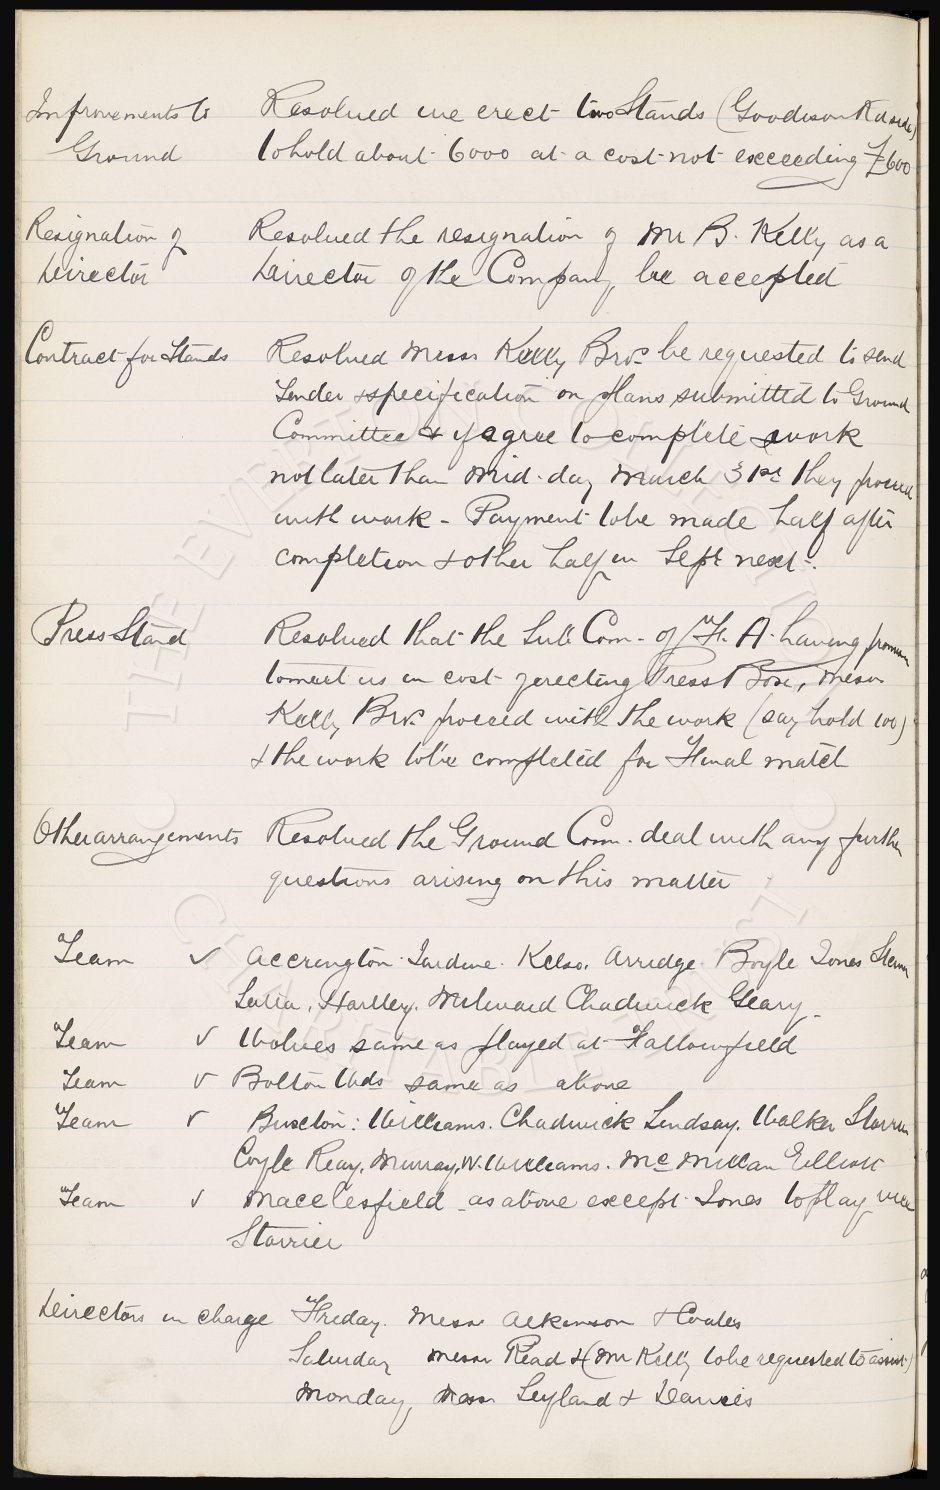 Improvements to Resolved we erect two Stands (Goodison Rd side)
Ground to hold about 6000 at a cost not exceeding £600
Resignation of Resolved the resignation of Mr B. Kelly as a
Director Director of the Company, be accepted
Contract for Stands Resolved Messrs Kelly Bros be requested to send
Tender & specification on plans submitted to Ground
Committee & if agree to complete work
not later than Mid-day March 31st they proceed
with work - Payment to be made half after
completion & other half in Sept next.
Press Stand Resolved that the Sub Com. of F. A. having promised
to meet us in cost of erecting Press Box, Messrs
Kelly Bros proceed with the work (say hold 100)
& the work to be completed for Final match
Other arrangements Resolved the Ground Com. deal with any further
questions arising on this matter
Team ✓ Accrington Jardine. Kelso. Arridge. Boyle Jones
Latta. Hartley. Milward Chadwick Geary.
Team ✓ Wolves same as played at Fallowfield
Team ✓ Bolton Wds same as above
Team ✓ Buxton: Williams. Chadwick Lindsay. Walker Starrier
Coyle Reay, Murray, W. Williams. McMillan Elliott
Team ✓ Macclesfield - as above except Jones to play vice
Starrier
Directors in charge Friday. Messrs Atkinson & Coates
Saturday Messrs Read & (Mr Kelly to be requested to assist)
Monday, Messrs Leyland & Davies
THE EVERTON COLLECTION
CHARITABLE TRUST